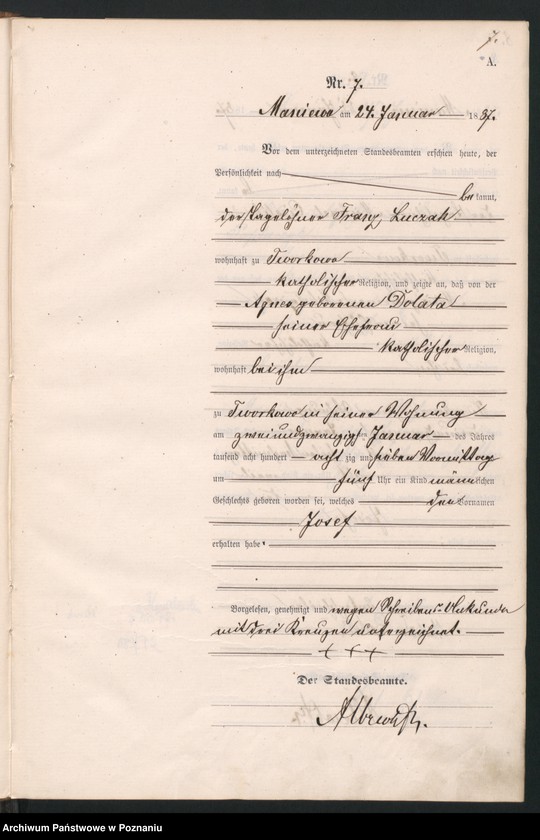 7.
A.
Nr. 7.
Maniewo am 24. Januar 1887.
Vor dem unterzeichneten Standesbeamten erschien heute, der
Persönlichkeit nach
bekannt,
der Tagelöhner Franz Luczak
wohnhaft zu Tworkowo
katholischer Religion, und zeigte an, daß von der
Agnes geborenen Dolata
seiner Ehefrau
katholischer Religion,
wohnhaft bei ihm
zu Tworkowo in seiner Wohnung
am zweiundzwanzigsten Januar des Jahres
tausend acht hundert acht zig und sieben Vormittags
um fünf Uhr ein Kind männlichen
Geschlechts geboren worden sei, welches den Vornamen
Josef
erhalten habe.
Vorgelesen, genehmigt und wegen Schreibens-Unkunde
mit drei Kreuzen unterzeichnet.
+ + +
Der Standesbeamte.
Albrecht.
Archiwum Państwowe w Poznaniu